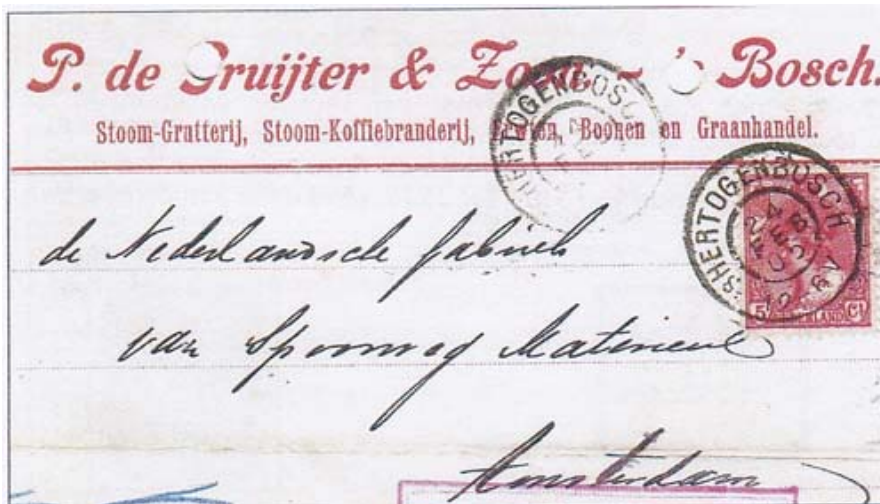 P. de Gruijter & Zoon - 's Bosch.
Stoom-Grutterij, Stoom-Koffiebranderij, Boonen en Graanhandel.
'SHERTOGENBOSCH
FEB
'SHERTOGENBOSCH
24
FEB
05
12-6V
5 Ct
de Nederlandsche fabriek
van Spoorweg Materieel
Amsterdam